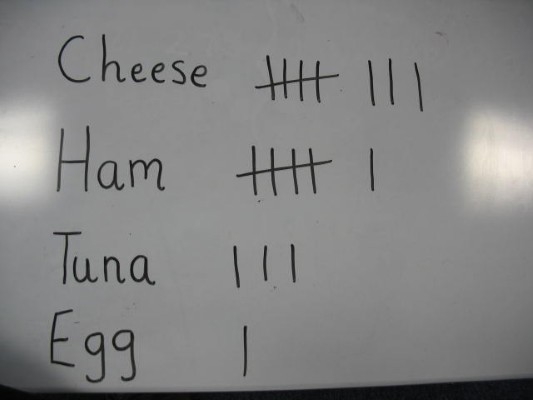 Cheese 𝍸 |||
Ham 𝍸 |
Tuna |||
Egg |